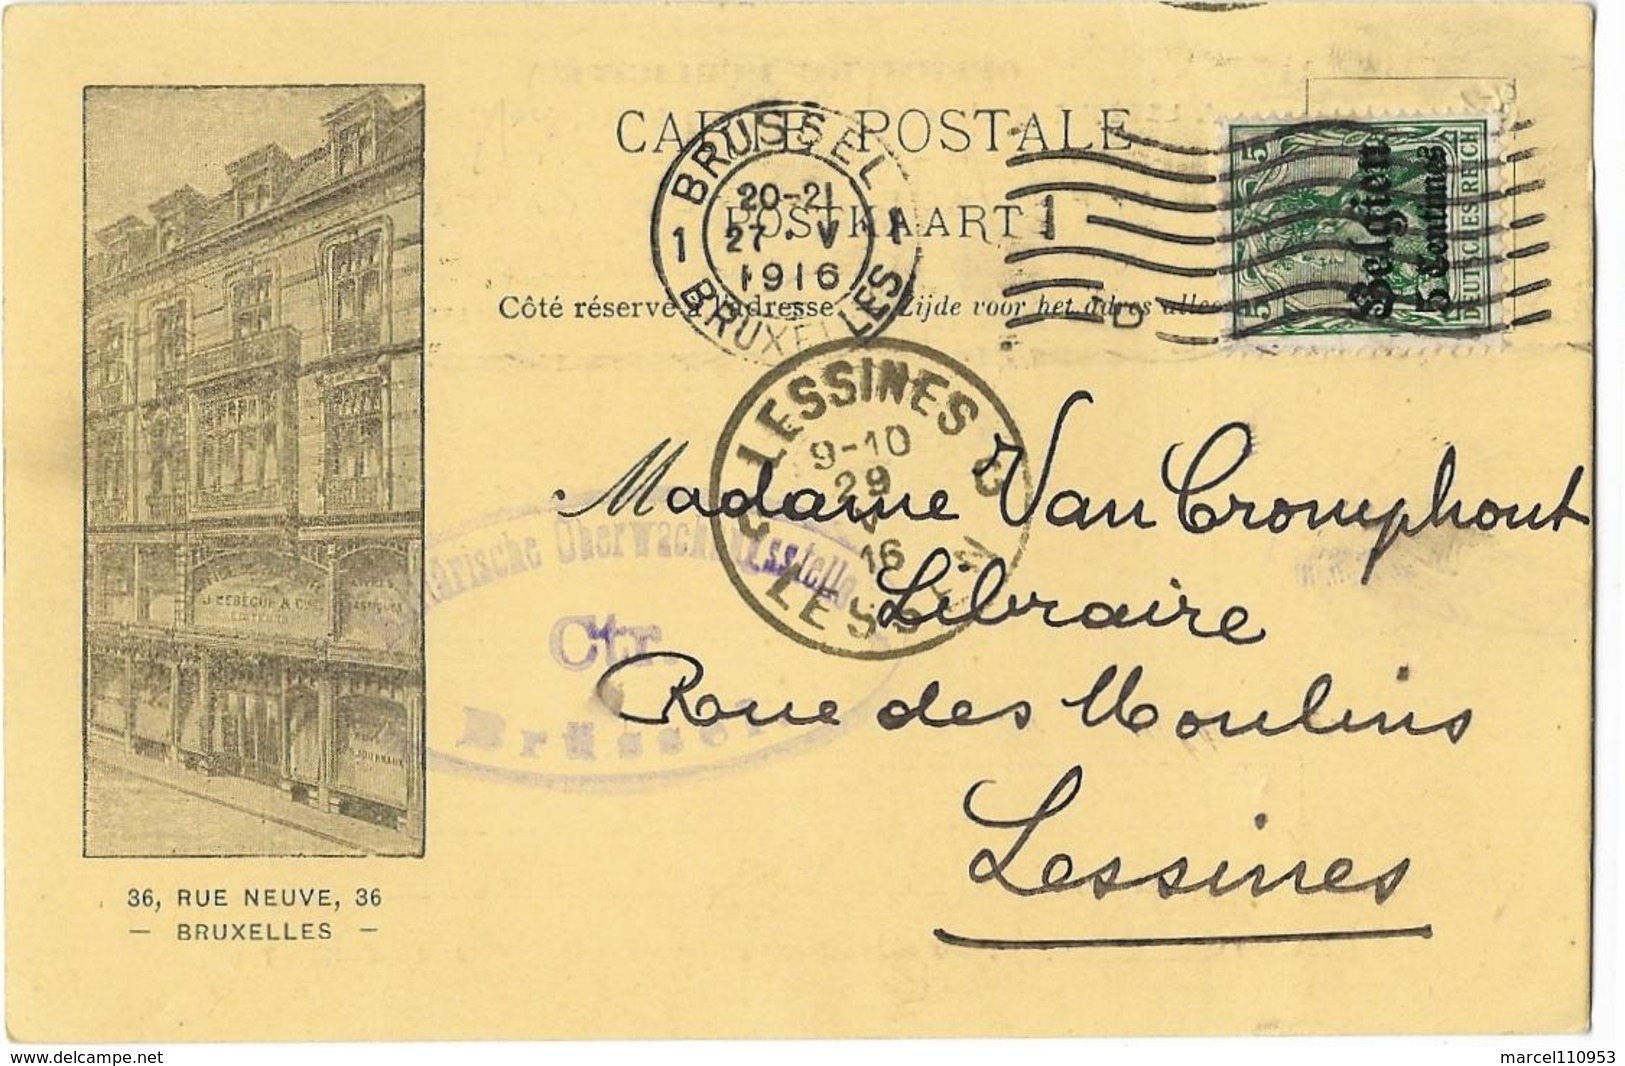 CARTE POSTALE
POSTKAART
Côté réservé à l'adresse
Zijde voor het adres alleen
BRUSSEL
1 1
20-21
27 · V
1916
BRUXELLES
D
5 5
Belgien
5 Centimes
DEUTSCHES REICH
LESSINES
9-10
29
V
16
LESS
Militärische Überwachungsstelle
Ctr.
Brüssel
Madame Van Cromphout
Libraire
Rue des Moulins
Lessines
J. LEBÈGUE & Cie
EDITEURS
JOURNAUX
36, RUE NEUVE, 36
— BRUXELLES —
delcampe.net
marcel110953